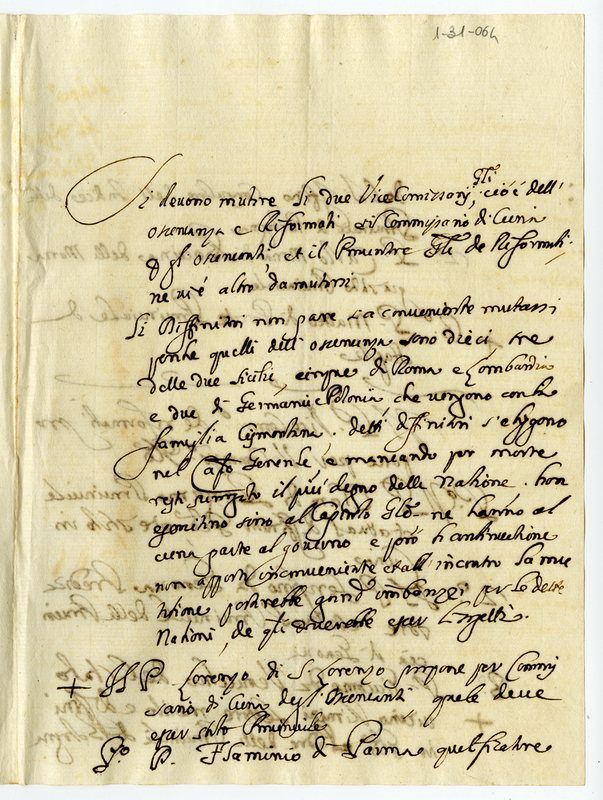 1-31-064
Si devono mutare li due Vice Comissarij gli cioè dell'
osseruanza e Riformati et il Commissario di Curia
gl' osseruanti, et il Procuratore Gle de Riformati,
ne ui è altro da mutarsi
Li Diffinitori non pare sia conueniente mutarsi
perche quelli dell' osseruanza sono dieci, tre
delle due Sicilie, cinque di Roma e Lombardia
e due di Germania e Polonia che uengono con la
famiglia Cismontana. detti diffinitori s'elegono
nel Capto Generale, e mancando per morte
resti surrogato il più degno delle Natione. hor
sino al Capitolo Gle ne hanno al
cuna parte al gouerno e però la continuatione
non apporta inconueniente et all' incontro la mu
tatione portarebbe grand' per le dette
Nationi, de q'li douerebbe esser l'
+ Il P. Lorenzo di S. Lorenzo propone per Commis
sario di Curia degl' Osseruanti, quale deve
esser stato Prouinciale
Po. P. Flaminio di Parma quel fratre